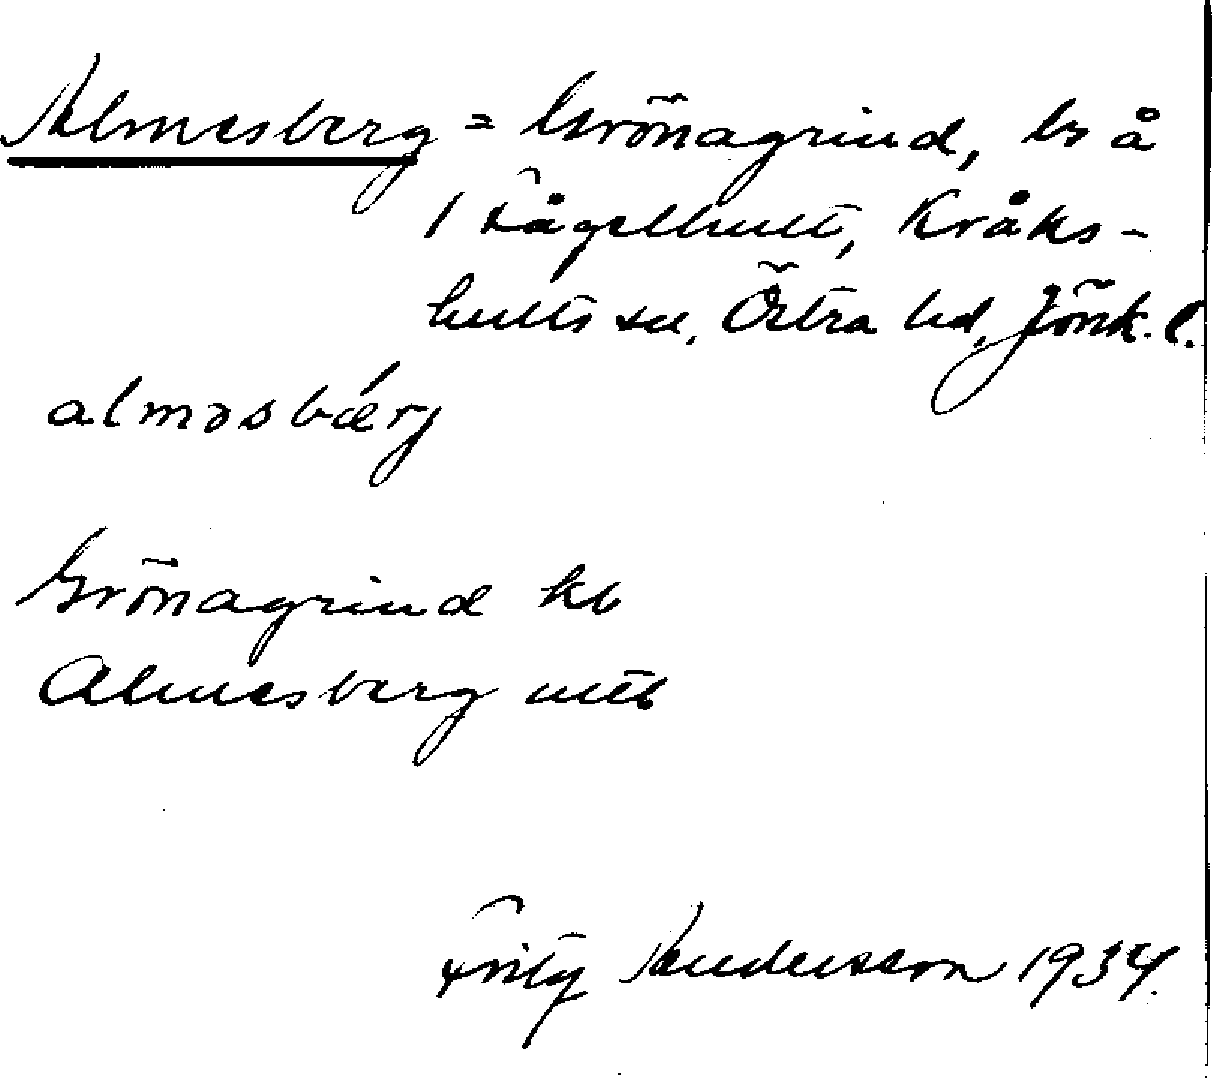 Almesberg = Grönagrind, ls å
1 Fågelhult, Kråks-
hults sn, Östra hd, Jönk. l.
alməsbǽrj
Grönagrind kb
Almesberg mtb
Fritz Andersson 1934.